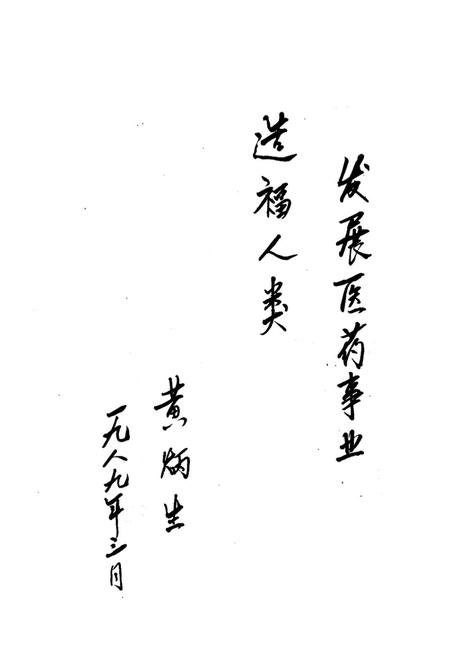 发展医药事业
造福人类
黄炳生
一九八九年三月